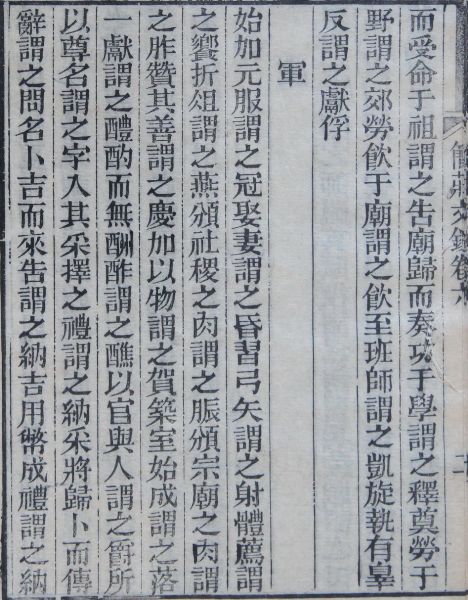 而受命于祖謂之告廟歸而奏功于學謂之釋奠勞于
野謂之郊勞飲于廟謂之飲至班師謂之凱旋執有辠
反謂之獻俘
軍
始加元服謂之冠娶妻謂之昏習弓矢謂之射體薦謂
之饗折俎謂之燕頒社稷之肉謂之脤頒宗廟之肉謂
之胙贊其善謂之慶加以物謂之賀築室始成謂之落
一獻謂之醴酌而無酬酢謂之醮以官與人謂之爵所
以尊名謂之字入其采擇之禮謂之納采將歸卜而傳
辭謂之問名卜吉而來告謂之納吉用幣成禮謂之納